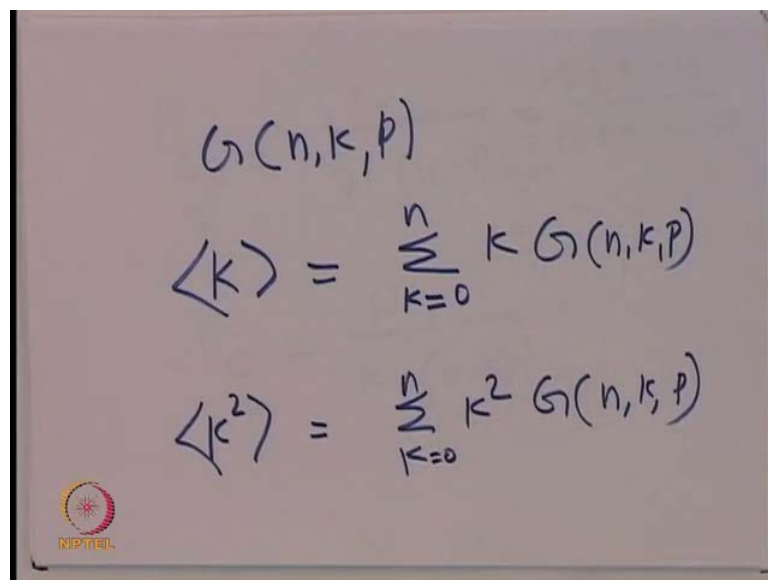 G(n, k, p)
⟨k⟩ = n Σ k=0 k G(n, k, p)
⟨k²⟩ = n Σ k=0 k² G(n, k, p)
NPTEL